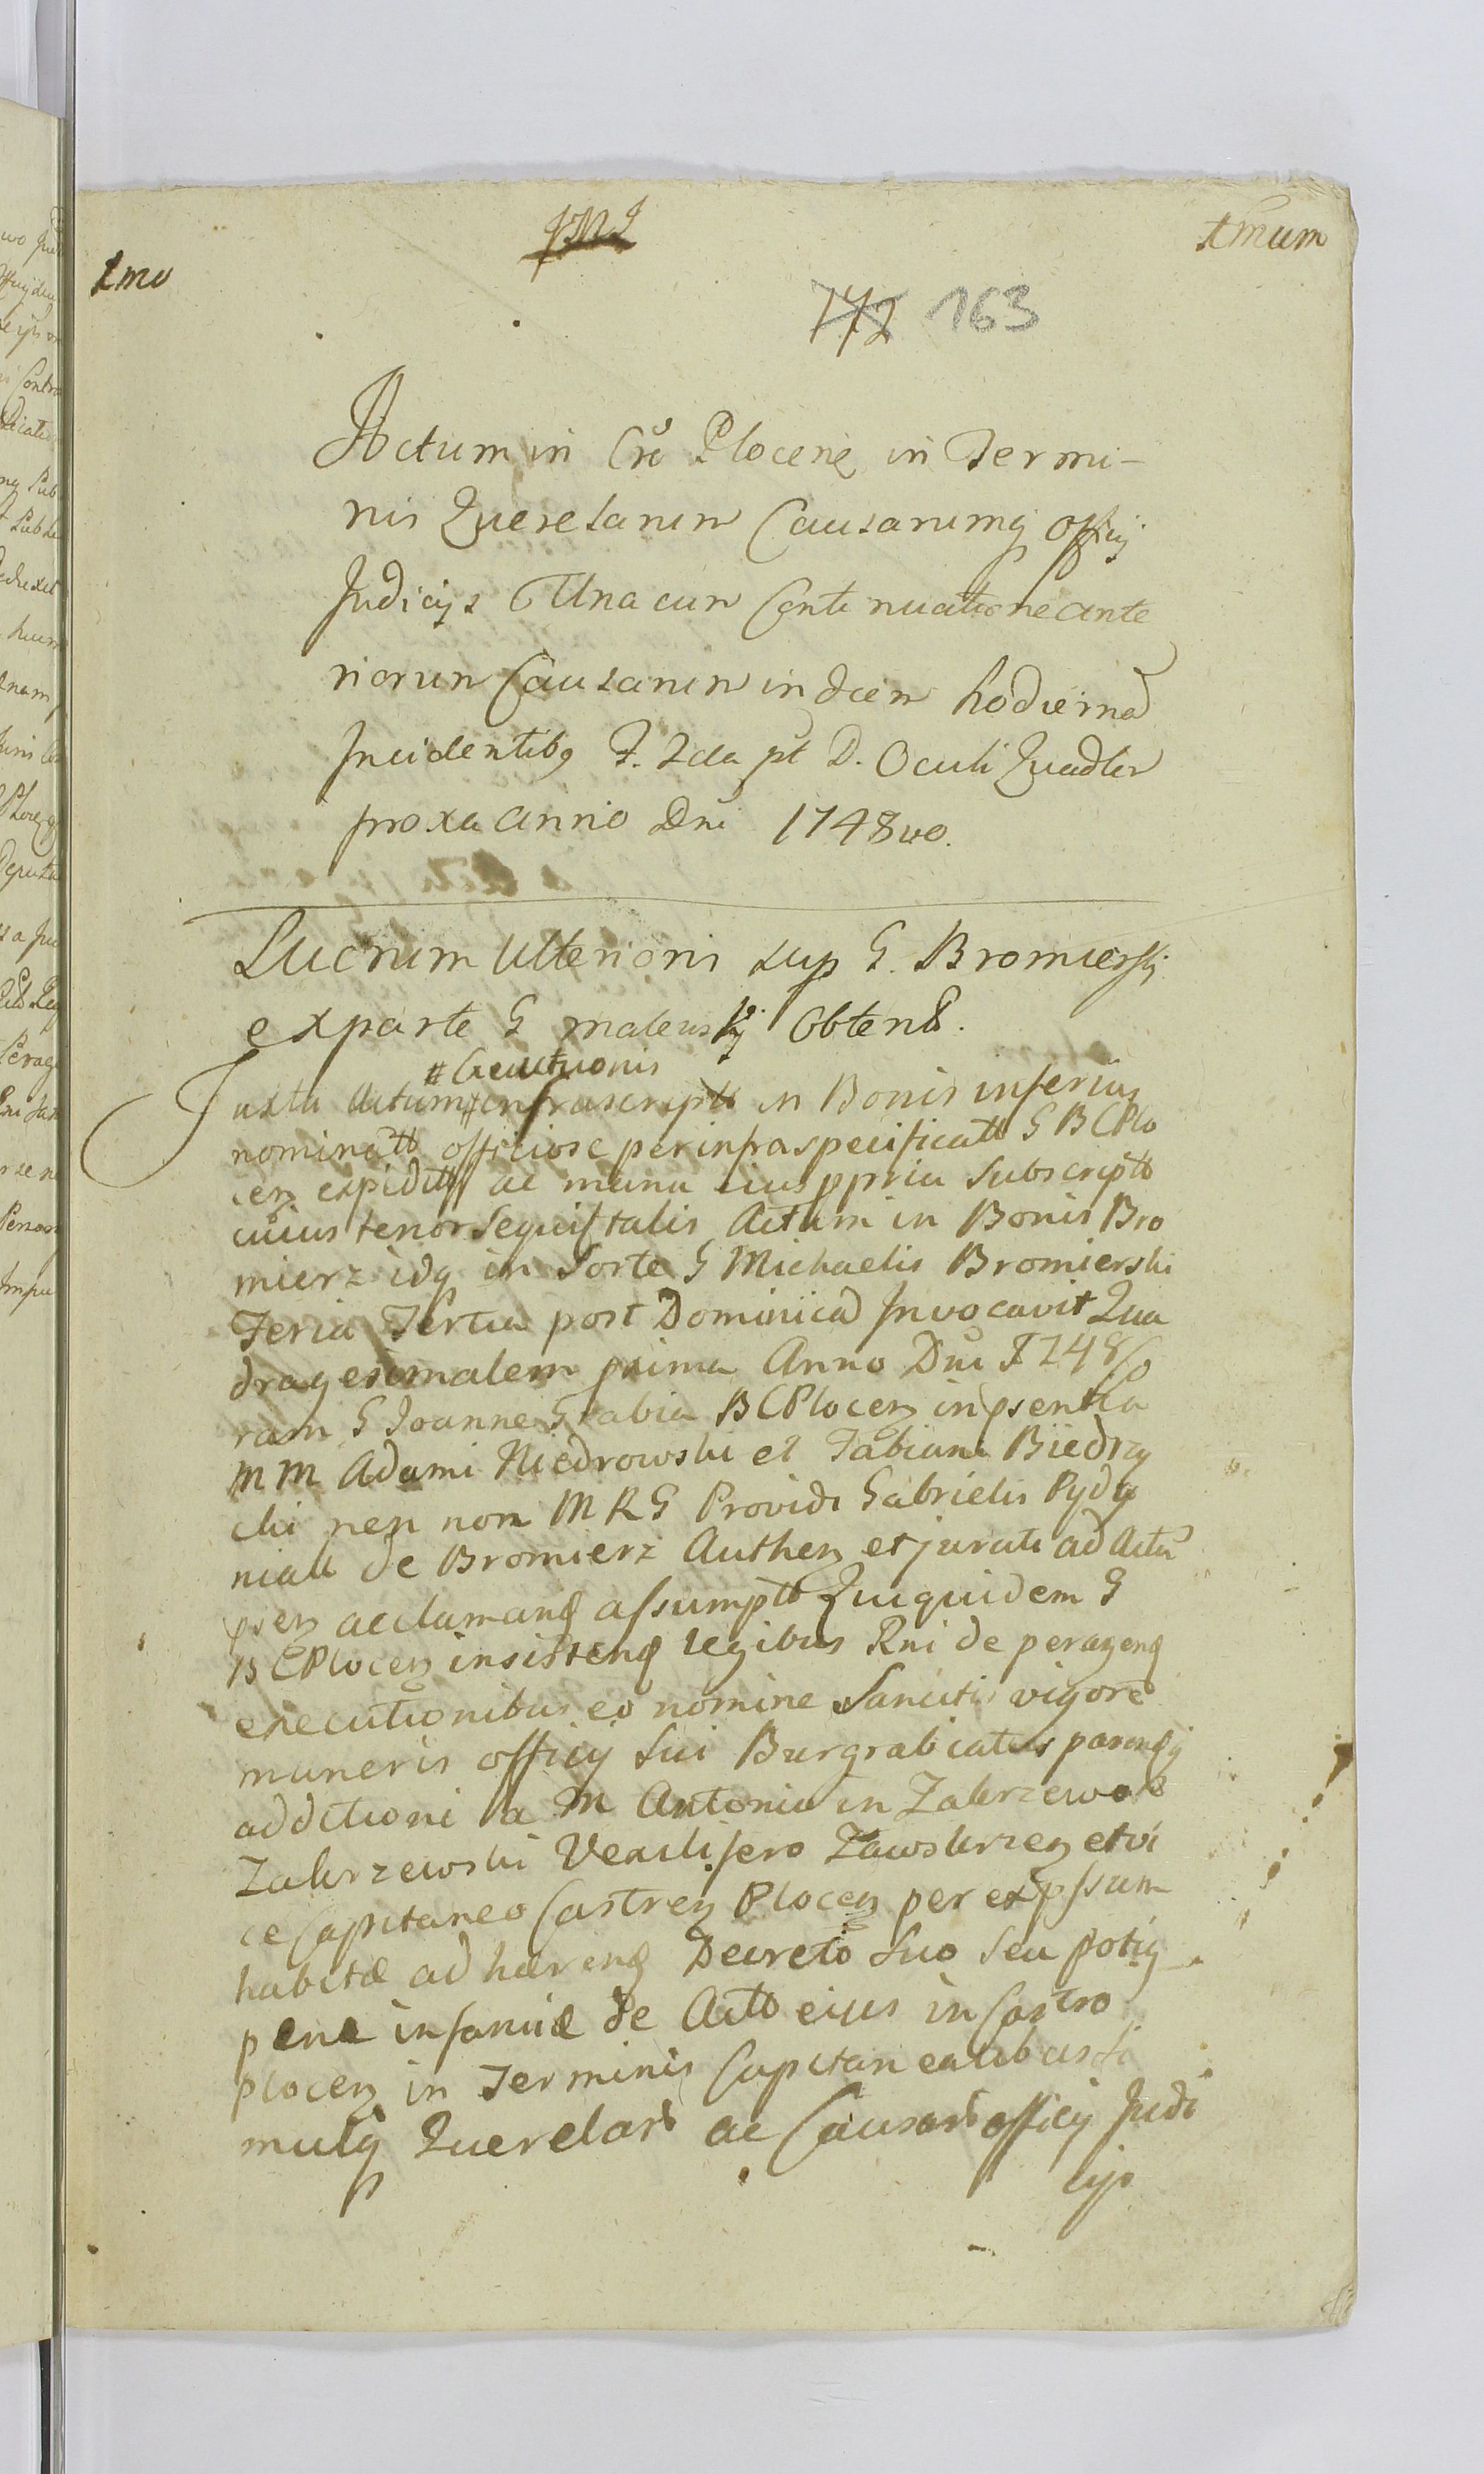 JMJ
1mum
1mo
172 163
Actum in Cro Plocen in Termi-
nis Querelarum Causarumq officij
Judicijs Una cum Conti nuatione ante
riorum Causarum in diem hodierna
Incidentibq F. 2da pt D. Oculi Quadler
proxa anno Dni 1748vo.
Lucrum Ulterioris sup G. Bromierskj
ex parte G maleuskj Obtent.
# Executionis
Juxta Actum # infrascriptt in Bonis inferius
nominatt officiose per infraspecificatt G B C Plo
cen expeditt ac manu eius ppria Subscriptt
cuius tenor Sequit talis Actum in Bonis Bro
mierz idq in Sorte G Michaelis Bromierski
Feria Tertia post Dominica Invocavit Qua
dragesimalem prima Anno Dni 1748 Co
ram G Joanne Grabia B C Plocen in psentia
M M Adami Niedrowski et Fabiani Biedrzy
cki nec non M R G Providi Gabrielis Pydy
niak de Bromierz Authen et jurati ad Actu
psen acclamand assumptt Qui quidem G
B C Plocen insistend legibus Rni de peragend
executionibus eo nomine Sancitis vigore
muneris officij Sui Burgrabiatus parendq
additioni a M Antonio in Zakrzewo
Zakrzewski Vexilifero Zawskrzen et vi
ce Capitaneo Castren Plocen per expssum
habitæ ad hærend Decreto Suo Seu potiq
pene infamiæ de Actt eius in Castro
plocen in Terminis Capitanealibus Si
mulq Querelar ac Causar officij Judi
cijs